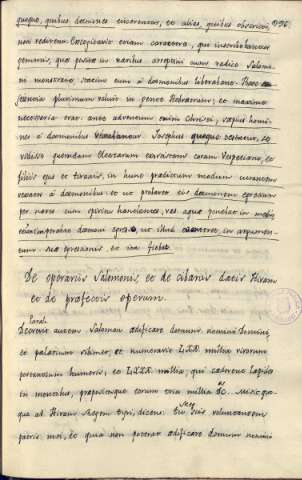 gneque, quibus daemones eiicerentur, et alios, quibus obstricti,
non redirent. Excogitavit etiam characteres, qui inscribebantur
gemmis, quae posita in naribus arreptitii cum radice Salomo-
ni monstrata, statim eum a daemonibus liberabant. Haec
scientia plurimum valuit in gente Hebraeorum, et maxime
necessaria erat. ante adventum enim Christi, saepius homi-
nes a daemonibus vexabantur Josephus quoque testatur, se
vidisse quemdam Eleazarum exorcistam coram Vespesiano, et
filiis ejus et tribunis, in hunc praedictum modum curantem
vexatos a daemonibus. et ut probaret eis daemonem egressum
per nares cum spiritu hominis, vas aqua
imperare daemoni egresso, ut illud everteret, in argumen-
tum suae egressionis, et ita fiebat.
De operariis Salomonis, et de cibariis datis Hiram
et de praefectis operum.
Decrevit autem Salomon aedificare domum nomini Domini,
et palatium sibimet, et numeravit LXX millia virorum
portantium humeris, et LXXX millia, qui caederent lapides
in montibus, praepositosque eorum tria millia DC. Misit quo-
que ad Hiram Regem Tyri, dicens: Tu scis voluntatem
patris mei, et quia non poterat aedificare domum nomini